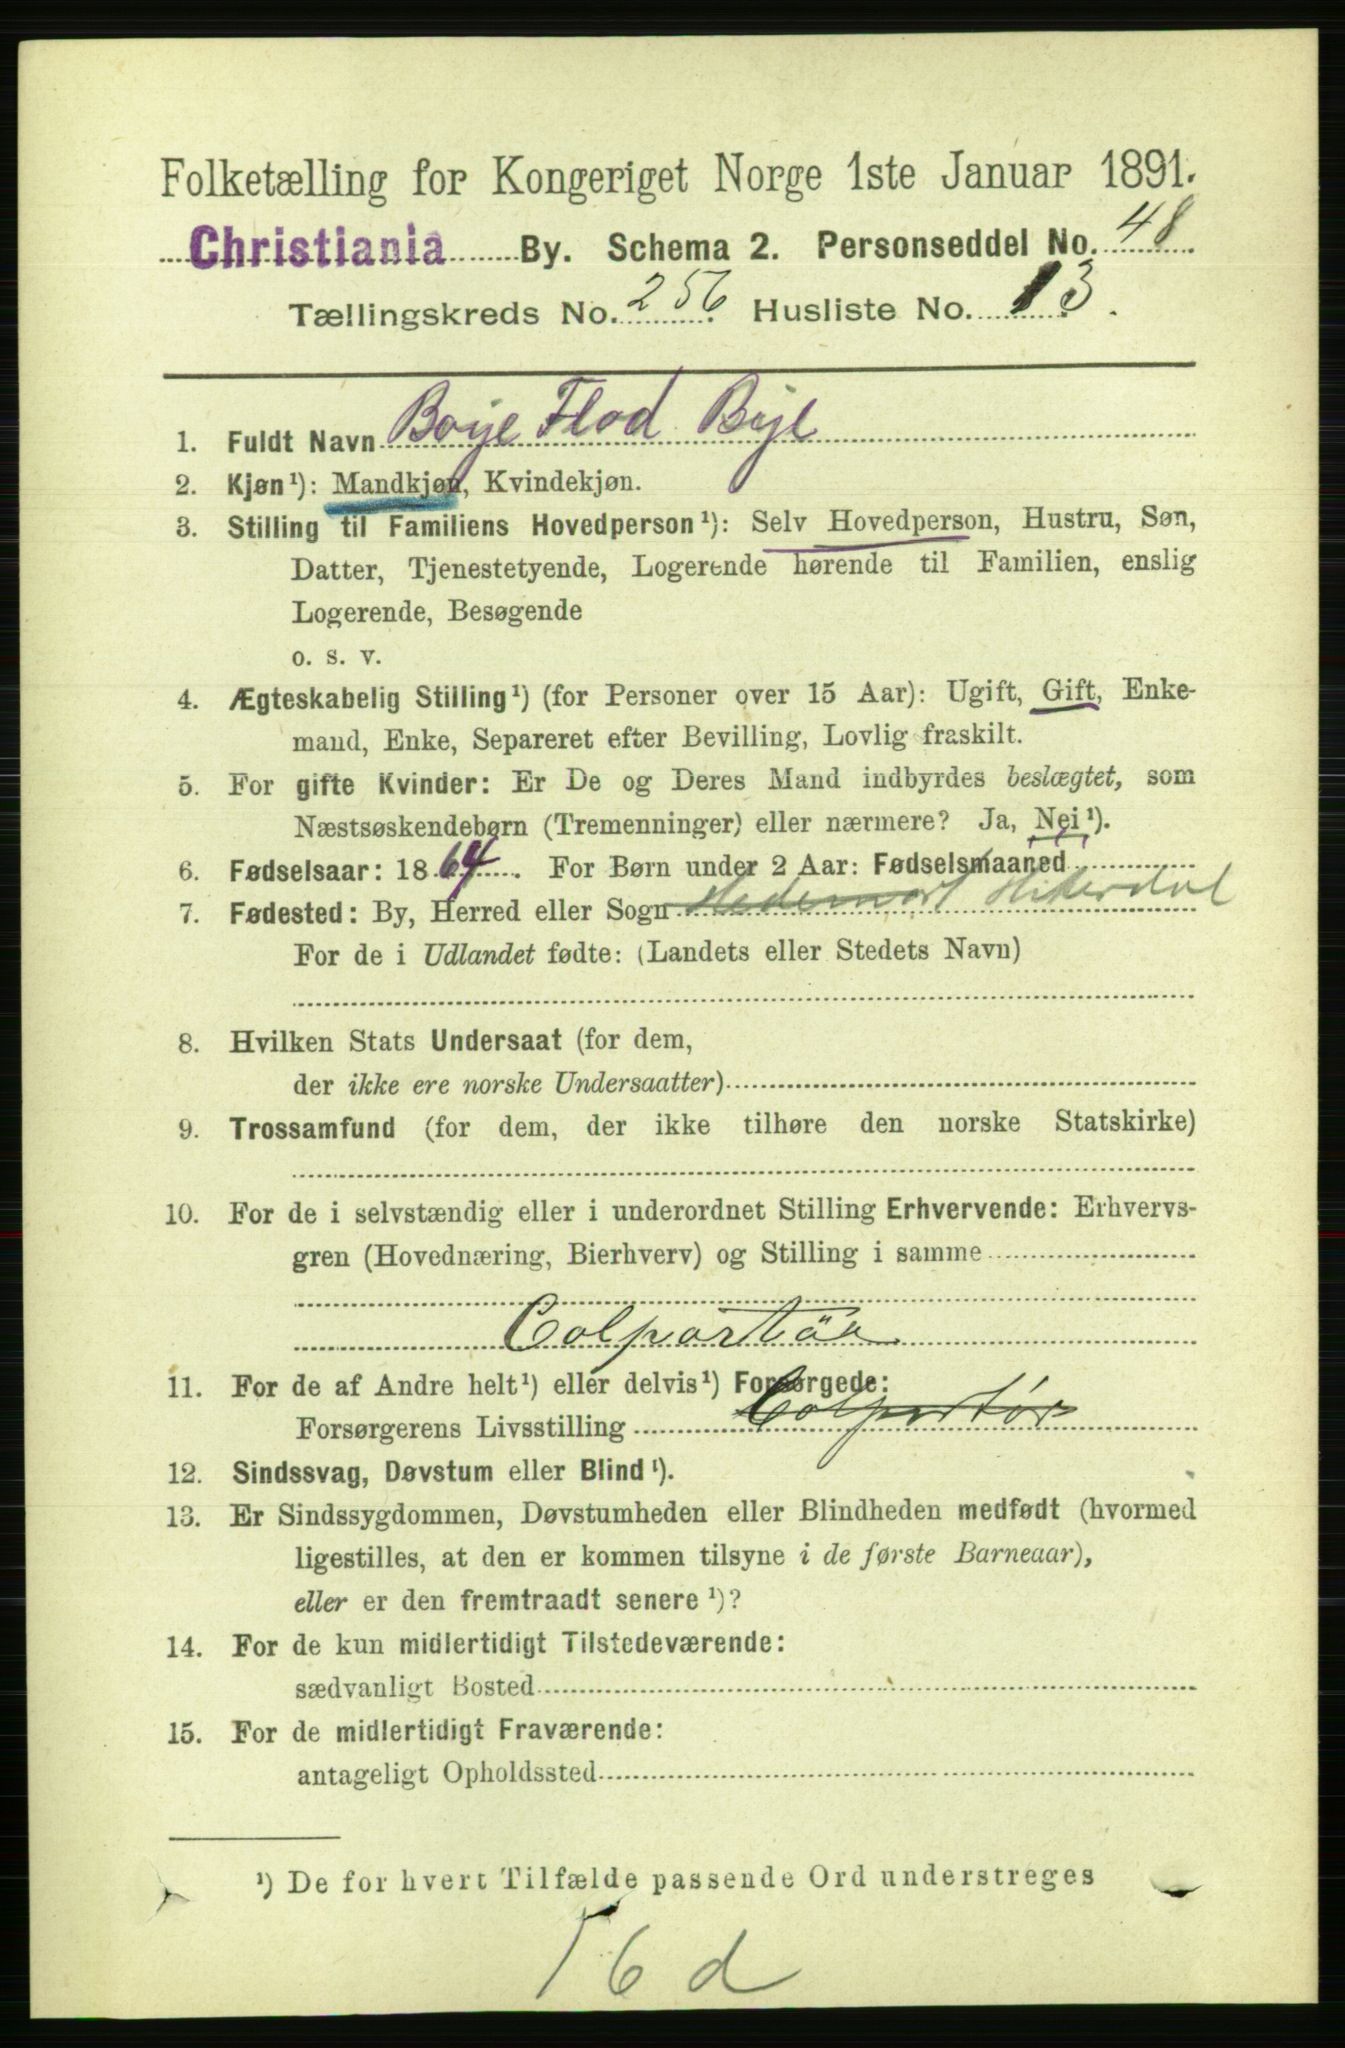 Folketælling for Kongeriget Norge 1ste Januar 1891.
Christiania By. Schema 2. Personseddel No. 48
Tællingskreds No. 256 Husliste No. 13.
1. Fuldt Navn Boye Flod Bye
2. Kjøn¹): Mandkjøn, Kvindekjøn.
3. Stilling til Familiens Hovedperson¹): Selv Hovedperson, Hustru, Søn,
Datter, Tjenestetyende, Logerende hørende til Familien, enslig
Logerende, Besøgende
o. s. v.
4. Ægteskabelig Stilling¹) (for Personer over 15 Aar): Ugift, Gift, Enke-
mand, Enke, Separeret efter Bevilling, Lovlig fraskilt.
5. For gifte Kvinder: Er De og Deres Mand indbyrdes beslægtet, som
Næstsøskendebørn (Tremenninger) eller nærmere? Ja, Nei¹).
6. Fødselsaar: 1864. For Børn under 2 Aar: Fødselsmaaned
7. Fødested: By, Herred eller Sogn Hitterdal
For de i Udlandet fødte: (Landets eller Stedets Navn)
8. Hvilken Stats Undersaat (for dem,
der ikke ere norske Undersaatter)
9. Trossamfund (for dem, der ikke tilhøre den norske Statskirke)
10. For de i selvstændig eller i underordnet Stilling Erhvervende: Erhvervs-
gren (Hovednæring, Bierhverv) og Stilling i samme
Colportör
11. For de af Andre helt¹) eller delvis¹) Forsørgede:
Forsørgerens Livsstilling Colportør
12. Sindssvag, Døvstum eller Blind¹).
13. Er Sindssygdommen, Døvstumheden eller Blindheden medfødt (hvormed
ligestilles, at den er kommen tilsyne i de første Barneaar),
eller er den fremtraadt senere¹)?
14. For de kun midlertidigt Tilstedeværende:
sædvanligt Bosted
15. For de midlertidigt Fraværende:
antageligt Opholdssted
¹) De for hvert Tilfælde passende Ord understreges
56 d